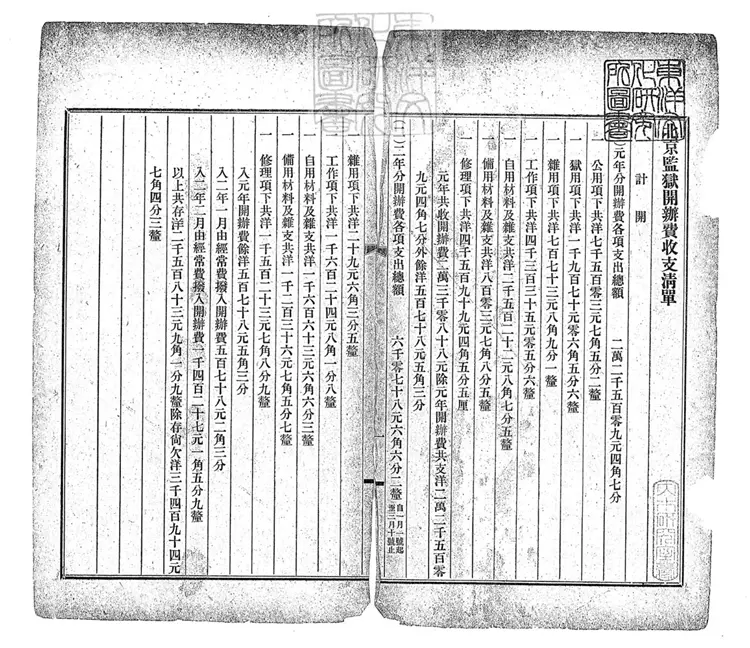 京監獄開辦費收支清單
計開
)元年分開辦費各項支出總額 二萬二千五百零九元四角七分
公用項下共洋七千五百零三元七角五分二釐
獄用項下共洋一千九百七十元零六角六分六釐
一 雜用項下共洋七百七十三元八角九分一釐
一 工作項下共洋四千三百三十五元零五分六釐
一 自用材料及雜支共洋二千五百二十二元八角七分五釐
一 備用材料及雜支共洋八百零三元七角八分五釐
一 修理項下共洋四千五百九十九元四角五分五厘
元年共收開辦費二萬三千零八十八元除元年開辦費共支洋二萬二千五百零
九元四角七分外餘洋五百七十八元五角三分
(二)二年分開辦費各項支出總額 六千零七十八元六角六分二釐 自一月一號起至三月十號止
一 雜用項下共洋二十九元六角三分五釐
一 工作項下共洋一千六百二十四元八角一分八釐
一 自用材料及雜支共洋一千六百六十三元六角六分三釐
一 備用材料及雜支共洋一千二百三十六元七角五分七釐
一 修理項下共洋一千五百二十三元七角八分九釐
入元年開辦費餘洋五百七十八元五角三分
入二年一月由經常費撥入開辦費五百七十八元二角三分
入二年二月由經常費撥入開辦費一千四百二十七元一角五分九釐
以上共存洋二千五百八十三元九角一分九釐除存尚欠洋三千四百九十四元
七角四分三釐
一
東洋文化研究所圖書